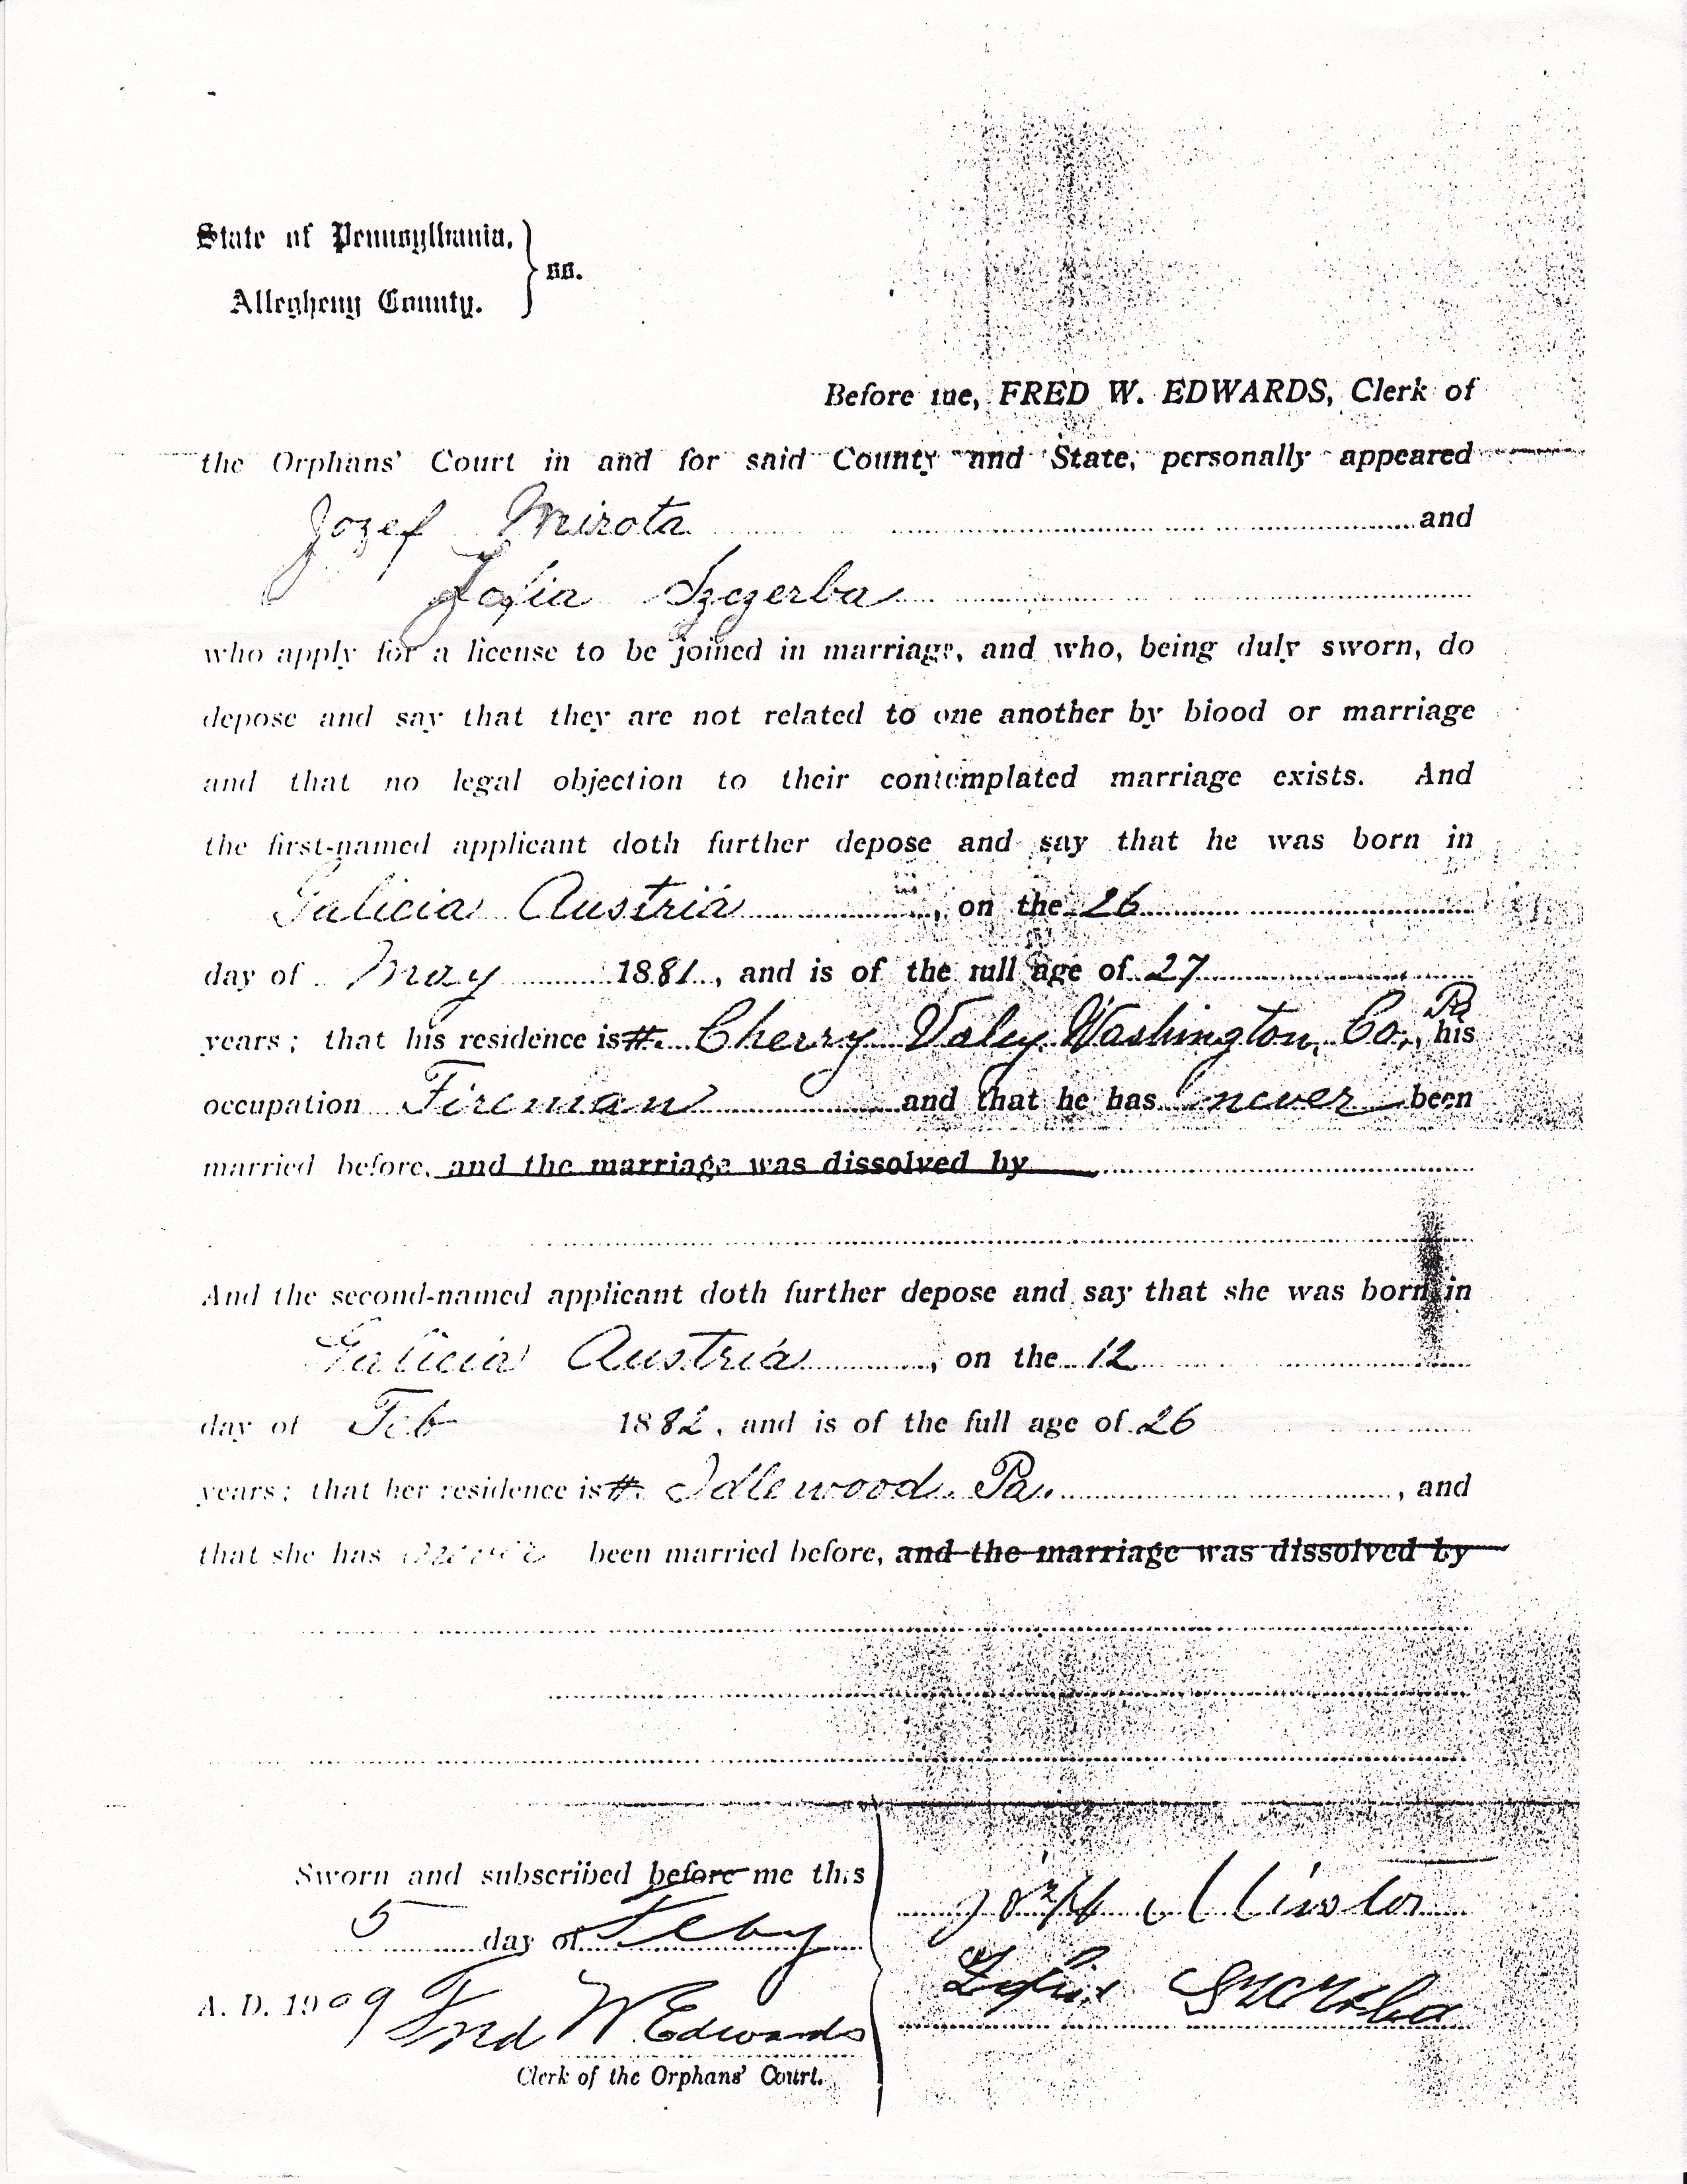 State of Pennsylvania, } ss.
Allegheny County.
Before me, FRED W. EDWARDS, Clerk of
the Orphans' Court in and for said County and State, personally appeared
Jozef Mirota and
Zofia Szczerba
who apply for a license to be joined in marriage, and who, being duly sworn, do
depose and say that they are not related to one another by blood or marriage
and that no legal objection to their contemplated marriage exists. And
the first-named applicant doth further depose and say that he was born in
Galicia Austria, on the 26
day of May 1881, and is of the full age of 27
years; that his residence is #. Cherry Valey Washington, Co., Pa his
occupation Fireman and that he has never been
married before, and the marriage was dissolved by
And the second-named applicant doth further depose and say that she was born in
Galicia Austria, on the 12
day of Feb 1882, and is of the full age of 26
years; that her residence is #. Idlewood. Pa., and
that she has never been married before, and the marriage was dissolved by
Sworn and subscribed before me this
5 day of Feby
A. D. 1909 Fred W Edwards
Clerk of the Orphans' Court.
Zofia